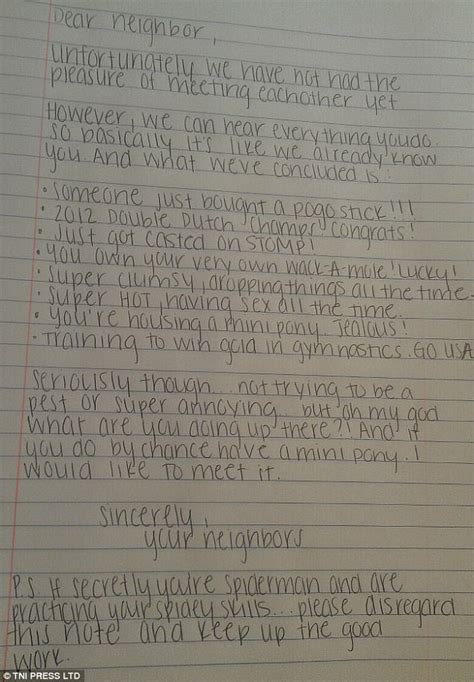 Dear neighbor,
Unfortunately we have not had the
pleasure of meeting eachother yet
However, we can hear everything you do.
so basically it's like we already know
you. And what we've concluded is:
• Someone just bought a pogo stick!!!
• 2012 Double Dutch Champs! Congrats!
• Just got casted on STOMP!
• You own your very own wack-A-mole! Lucky!
• Super clumsy, dropping things all the time.
• Super HOT, having sex all the time.
• You're housing a mini pony. Jealous!
• Training to win gold in gymnastics. GO USA
Seriously though... not trying to be a
pest or super annoying... but oh my god
what are you doing up there?! And if
you do by chance have a mini pony. I
would like to meet it.
Sincerely,
your neighbors
P.S. If secretly you're spiderman and are
practicing your spidey skills... please disregard
this note and keep up the good
work.
© TNI PRESS LTD